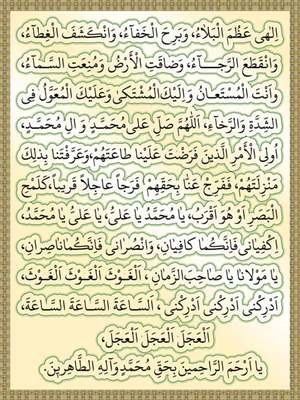 اِلٰهى عَظُمَ الْبَلاءُ، وَبَرِحَ الْخَفاءُ، وَانْكَشَفَ الْغِطاءُ،
وَانْقَطَعَ الرَّجـــاءُ، وَضاقَتِ الْاَرْضُ وَمُنِعَتِ السَّماءُ،
وَاَنْتَ الْمُسْتَعانُ وَاِلَيْكَ الْمُشْتَكى وَعَلَيْكَ الْمُعَوَّلُ فِى
الشِّدَّةِ وَالرَّخاءِ، اَللّٰهُمَّ صَلِّ عَلى مُحَمَّدٍ وَ الِ مُحَمَّدٍ،
اُولِى الْاَمْرِ الَّذينَ فَرَضْتَ عَلَيْنا طاعَتَهُمْ،وَعَرَّفْتَنا بِذلِكَ
مَنْزِلَتَهُمْ،فَفَرِّجْ عَنّا بِحَقِّهِمْ فَرَجاً عاجِلاً قَريباً،كَلَمْحِ
الْبَصَرِ اَوْ هُوَ اَقْرَبُ، يا مُحَمَّدُ يا عَلِىُّ، يا عَلِىُّ يا مُحَمَّدُ،
اِكْفِيانى فَاِنَّكُما كافِيانِ، وَانْصُرانى فَاِنَّكُماناصِرانِ،
يا مَوْلانا يا صاحِبَ الزَّمانِ ، اَلْغَوْثَ اَلْغَوْثَ اَلْغَوْثَ،
اَدْرِكْنى اَدْرِكْنى اَدْرِكْنى ، اَلسّاعَةَ السّاعَةَ السّاعَةَ،
اَلْعَجَلَ اَلْعَجَلَ الْعَجَلَ،
يا اَرْحَمَ الرَّاحِمينَ بِحَقِّ مُحَمَّدٍ وَآلِهِ الطّاهِرينَ.